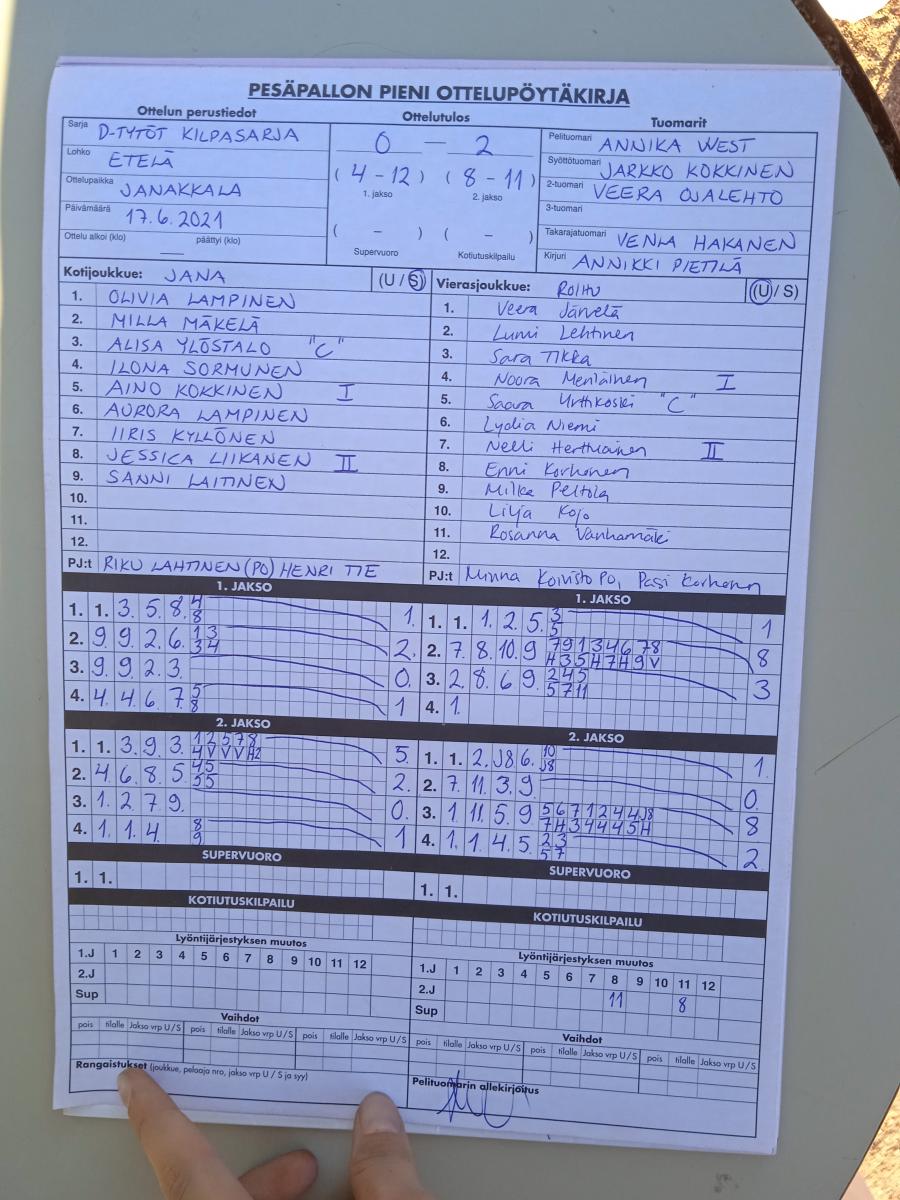 PESÄPALLON PIENI OTTELUPÖYTÄKIRJA
Ottelun perustiedot
Sarja D-TYTÖT KILPASARJA
Lohko ETELÄ
Ottelupaikka JANAKKALA
Päivämäärä 17.6.2021
Ottelu alkoi (klo) — päättyi (klo)
Ottelutulos
0 — 2
(4-12) (8-11)
1. jakso 2. jakso
( - ) ( - )
Supervuoro Kotiutuskilpailu
Tuomarit
Pelituomari ANNIKA WEST
Syöttötuomari JARKKO KOKKINEN
2-tuomari VEERA OJALEHTO
3-tuomari
Takarajatuomari VENLA HAKANEN
Kirjuri ANNIKKI PIETILÄ
Kotijoukkue: JANA (U / S)
1. OLIVIA LAMPINEN
2. MILLA MÄKELÄ
3. ALISA YLÖSTALO "C"
4. ILONA SORMUNEN
5. AINO KOKKINEN I
6. AURORA LAMPINEN
7. IIRIS KYLLÖNEN
8. JESSICA LIIKANEN II
9. SANNI LAITINEN
10.
11.
12.
PJ:t RIKU LAHTINEN (PO) HENRI TIE
Vierasjoukkue: ROIHU (U / S)
1. Veera Järvelä
2. Lumi Lehtinen
3. Sara Tikka
4. Noora I
5. Saara "C"
6. Lydia Niemi
7. Nelli II
8. Enni Korhonen
9. Milka Peltola
10. Lilja Kojo
11. Rosanna Vanhamäki
12.
PJ:t Minna Koivisto PO, Pasi Korhonen
1. JAKSO
1. 1. 3. 5. 8. 4 1.
8
2. 9. 9. 2. 6. 1 3 2.
3 4
3. 9. 9. 2. 3. 0.
4. 4. 4. 6. 7. 5 1
8
1. JAKSO
1. 1. 1. 2. 5. 3 1
5
2. 7. 8. 10. 9 7 9 1 3 4 6 7 8 8
H 3 5 H 7 H 9 V
3. 2. 8. 6. 9. 2 4 5 3
5 7 11
4. 1.
2. JAKSO
1. 1. 3. 9. 3. 1 2 5 7 8 5.
4 V V V H2
2. 4. 6. 8. 5. 4 5 2.
5 5
3. 1. 2. 7. 9. 0.
4. 1. 1. 4. 8 1
9
2. JAKSO
1. 1. 2. J8 6. 10 1.
J8
2. 7. 11. 3. 9. 0.
3. 1. 11. 5. 9 5 6 7 1 2 4 4 J8 8
7 H 3 4 4 4 5 H
4. 1. 1. 4. 5. 2 3 2
5 7
SUPERVUORO
1. 1.
SUPERVUORO
1. 1.
KOTIUTUSKILPAILU
KOTIUTUSKILPAILU
Lyöntijärjestyksen muutos
1.J 1 2 3 4 5 6 7 8 9 10 11 12
2.J
Sup
Lyöntijärjestyksen muutos
1.J 1 2 3 4 5 6 7 8 9 10 11 12
2.J 11 8
Sup
Vaihdot
pois tilalle Jakso vrp U / S pois tilalle Jakso vrp U / S pois tilalle Jakso vrp U / S
Vaihdot
pois tilalle Jakso vrp U / S pois tilalle Jakso vrp U / S pois tilalle Jakso vrp U / S
Rangaistukset (joukkue, pelaaja nro, jakso vrp U / S ja syy)
Pelituomarin allekirjoitus